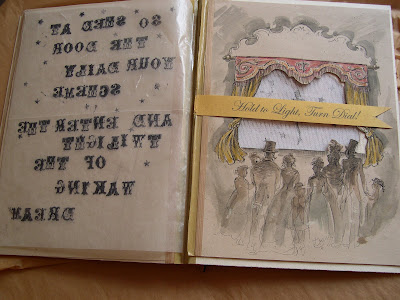 SO SHED AT
THE DOOR
YOUR DAILY
SCHEME
AND ENTER THE
TWILIGHT
OF THE
WAKING
DREAM
Hold to Light, Turn Dial!